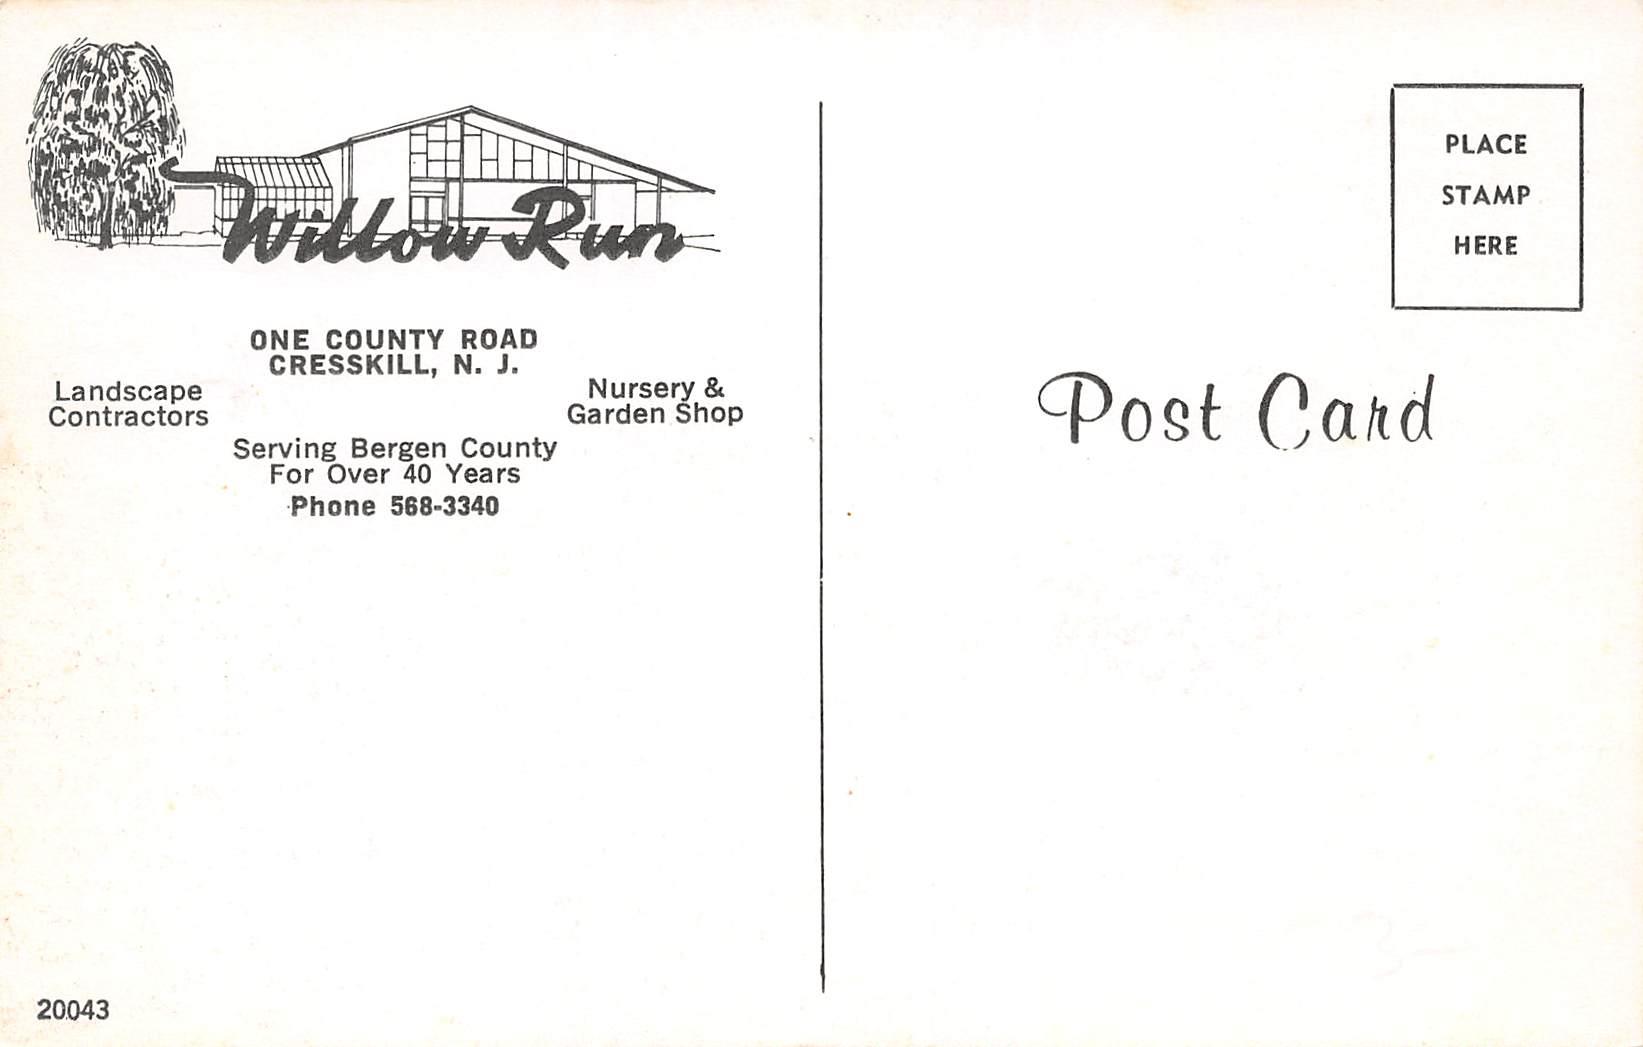 Willow Run
ONE COUNTY ROAD
CRESSKILL, N. J.
Landscape
Contractors
Nursery &
Garden Shop
Serving Bergen County
For Over 40 Years
Phone 568-3340
20043
PLACE
STAMP
HERE
Post Card